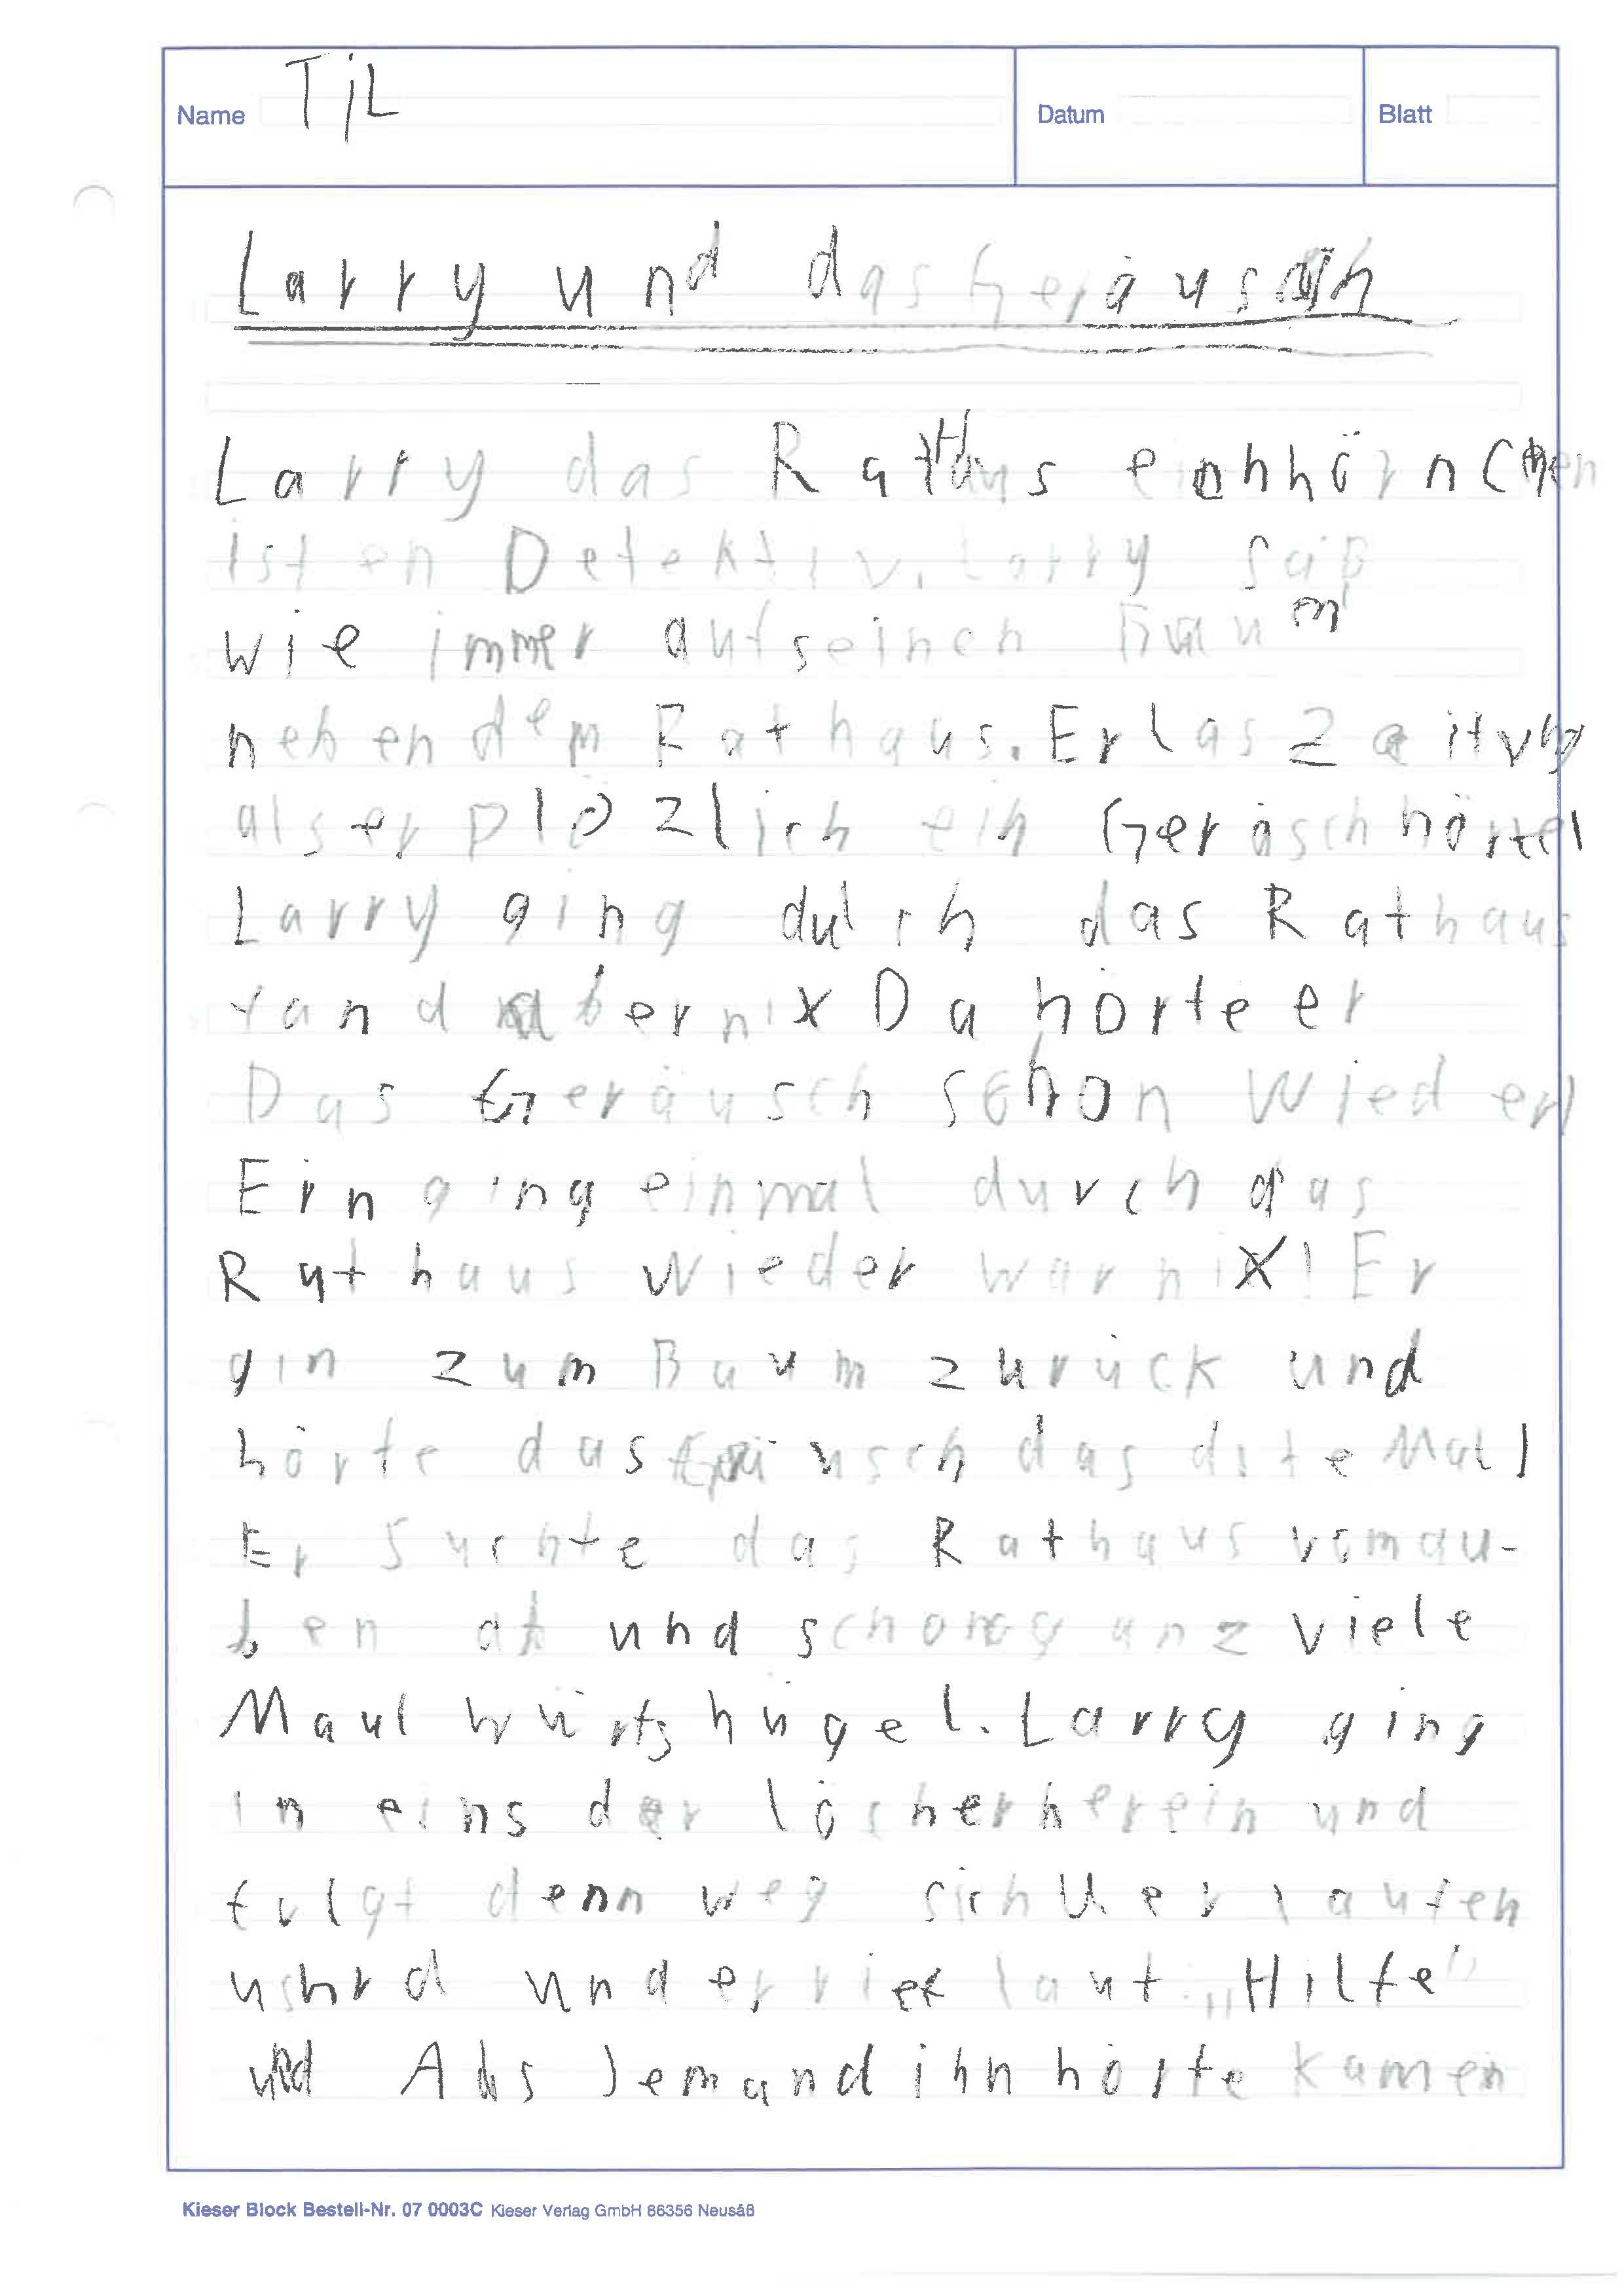 Name TiL Datum Blatt
Larry und das Geräusch
Larry das Rathaus einhörnchen
ist en Detektiv. Larry saß
wie immer auf seinen Baum
neben dem Rathaus. Er las Zeitung
als er plözlich ein Geräsch hörte!
Larry ging durch das Rathaus
fand aber nix Da hörte er
Das Geräusch schon wieder!
Er ging einmal durch das
Rathaus wieder war nix! Er
gin zum Baum zurück und
hörte das Geräusch das dite Mal!
Er Suchte das Rathaus von au-
ßen ab und schon ganz viele
Maulwürfshügel. Larry ging
in eins der löcher herein und
folgt denn weg sich Uerlaufen
und er rief laut: „Hilfe"
Als Jemand ihn hörte kamen
Kieser Block Bestell-Nr. 07 0003C Kieser Verlag GmbH 86356 Neusäß